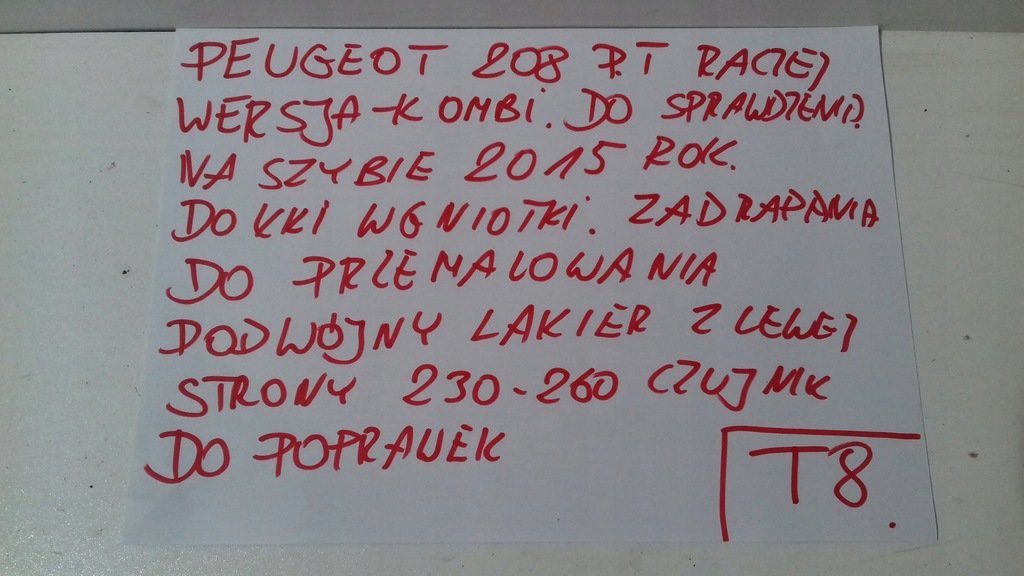 PEUGEOT 208 P.T RACZEJ
WERSJA-KOMBI. DO SPRAWDZENIA
NA SZYBIE 2015 ROK.
DO KKI WGNIOTKI. ZADRAPANIA
DO PRZEMALOWANIA
PODWÓJNY LAKIER Z LEWEJ
STRONY 230-260 CZUJNIK
DO POPRAWEK
T8.